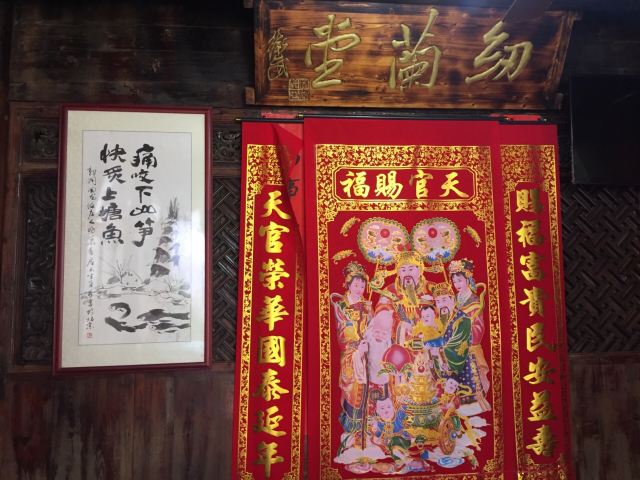 紉蘭堂
痛咬下山笋
快炙上塘魚
天官賜福
賜福富貴民安益壽
天官榮華國泰延年